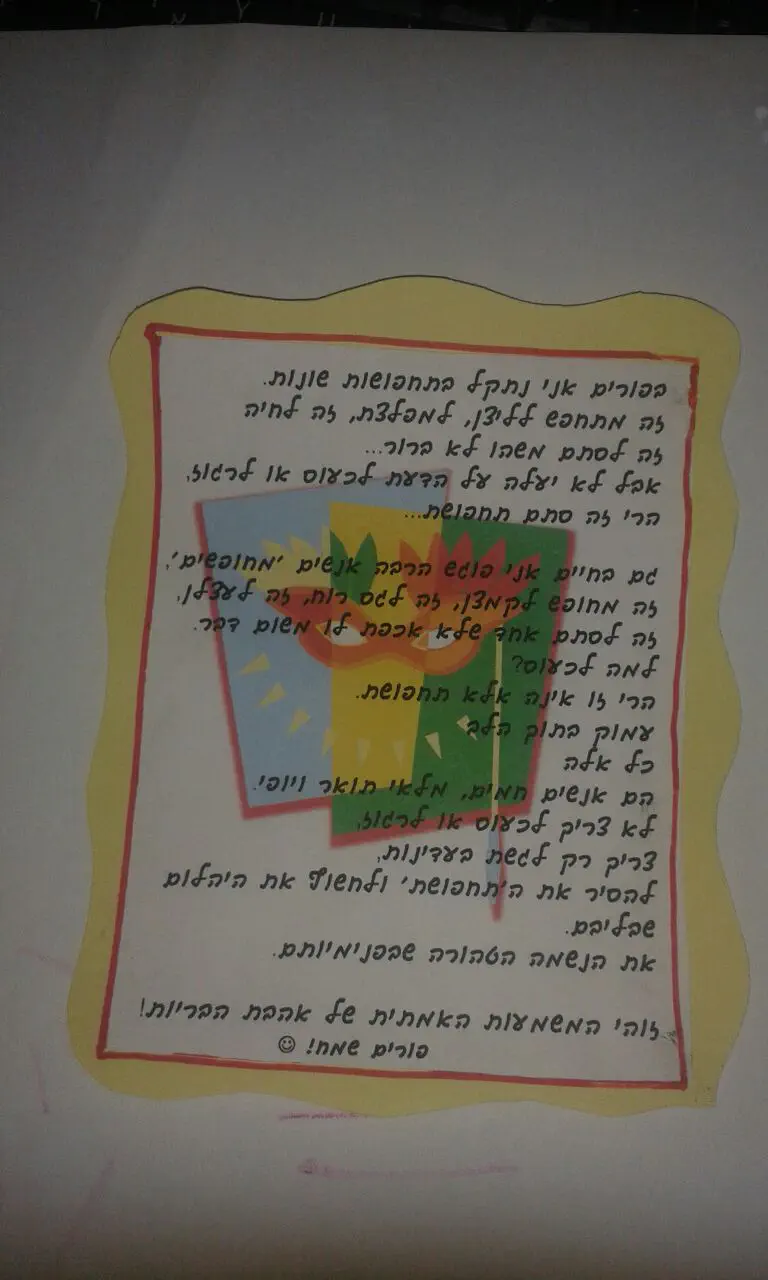 בפורים אני נתקל בתחפושות שונות.
זה מתחפש לליצן, למפלצת, זה לחיה
זה לסתם משהו לא ברור...
אבל לא יעלה על הדעת לכעוס או לרגוז,
הרי זה סתם תחפושת...
גם בחיים אני פוגש הרבה אנשים 'מחופשים',
זה מחופש לקמצן, זה לגס רוח, זה לעצלן,
זה לסתם אחד שלא אכפת לו משום דבר.
למה לכעוס?
הרי זו אינה אלא תחפושת.
עמוק בתוך הלב
כל אלה
הם אנשים חמים, מלאי תואר ויופי.
לא צריך לכעוס או לרגוז,
צריך רק לגשת בעדינות,
להסיר את ה'תחפושת' ולחשוף את היהלום
שבליבם.
את הנשמה הטהורה שבפנימיותם.
זוהי המשמעות האמתית של אהבת הבריות!
פורים שמח! ☺